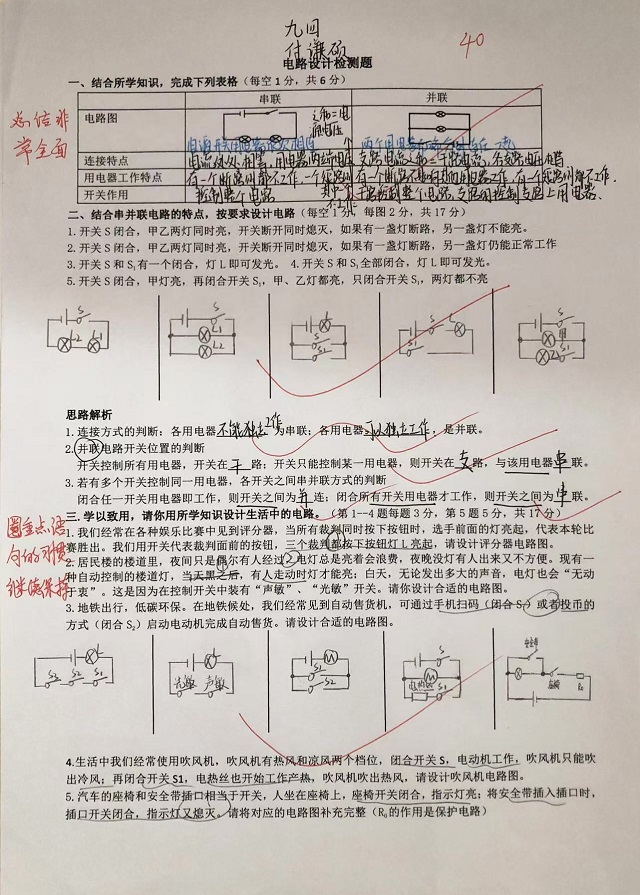 九四
付谦硕
40
电路设计检测题
一、结合所学知识，完成下列表格（每空1分，共6分）
串联 并联
电路图
总结非
常全面
连接特点
用电器工作特点
开关作用 控制整个电路
二、结合串并联电路的特点，按要求设计电路（每空1分，每图2分，共17分）
1.开关S闭合，甲乙两灯同时亮，开关断开同时熄灭，如果有一盏灯断路，另一盏灯不能亮。
2.开关S闭合，甲乙两灯同时亮，开关断开同时熄灭，如果有一盏灯断路，另一盏灯仍能正常工作
3.开关S和S₁有一个闭合，灯L即可发光。 4.开关S和S₁全部闭合，灯L即可发光。
5.开关S闭合，甲灯亮，再闭合开关S₁，甲、乙灯都亮，只闭合开关S₁，两灯都不亮
思路解析
1.连接方式的判断：各用电器不能独立工作为串联；各用电器可以独立工作，是并联。
2.并联电路开关位置的判断
开关控制所有用电器，开关在干路；开关只能控制某一用电器，则开关在支路，与该用电器串联。
3.若有多个开关控制同一用电器，各开关之间串并联方式的判断
闭合任一开关用电器即工作，则开关之间为并连；闭合所有开关用电器才工作，则开关之间为串联。
三.学以致用，请你用所学知识设计生活中的电路。（第1—4题每题3分，第5题5分，共17分）
圈重点语
句的习惯
继续保持
1.我们经常在各种娱乐比赛中见到评分器，当所有裁判同时按下按钮时，选手前面的灯亮起，代表本轮比
赛胜出。我们用开关代表裁判面前的按钮，三个裁判都按下按钮灯L亮起，请设计评分器电路图。
2.居民楼的楼道里，夜间只是偶尔有人经过，电灯总是亮着会浪费，夜晚没灯有人出来又不方便。现有一
种自动控制的楼道灯，当天黑之后，有人走动时灯才能亮；白天，无论发出多大的声音，电灯也会“无动
于衷”。这是因为在控制开关中装有“声敏”、“光敏”开关。请你设计合适的电路图。
3.地铁出行，低碳环保。在地铁候处，我们经常见到自动售货机，可通过手机扫码（闭合S₁）或者投币的
方式（闭合S₂）启动电动机完成自动售货。请设计合适的电路图。
光敏 声敏
4.生活中我们经常使用吹风机，吹风机有热风和凉风两个档位，闭合开关S，电动机工作，吹风机只能吹
出冷风；再闭合开关S1，电热丝也开始工作产热，吹风机吹出热风，请设计吹风机电路图。
5.汽车的座椅和安全带插口相当于开关，人坐在座椅上，座椅开关闭合，指示灯亮；将安全带插入插口时，
插口开关闭合，指示灯又熄灭。请将对应的电路图补充完整（R₀的作用是保护电路）